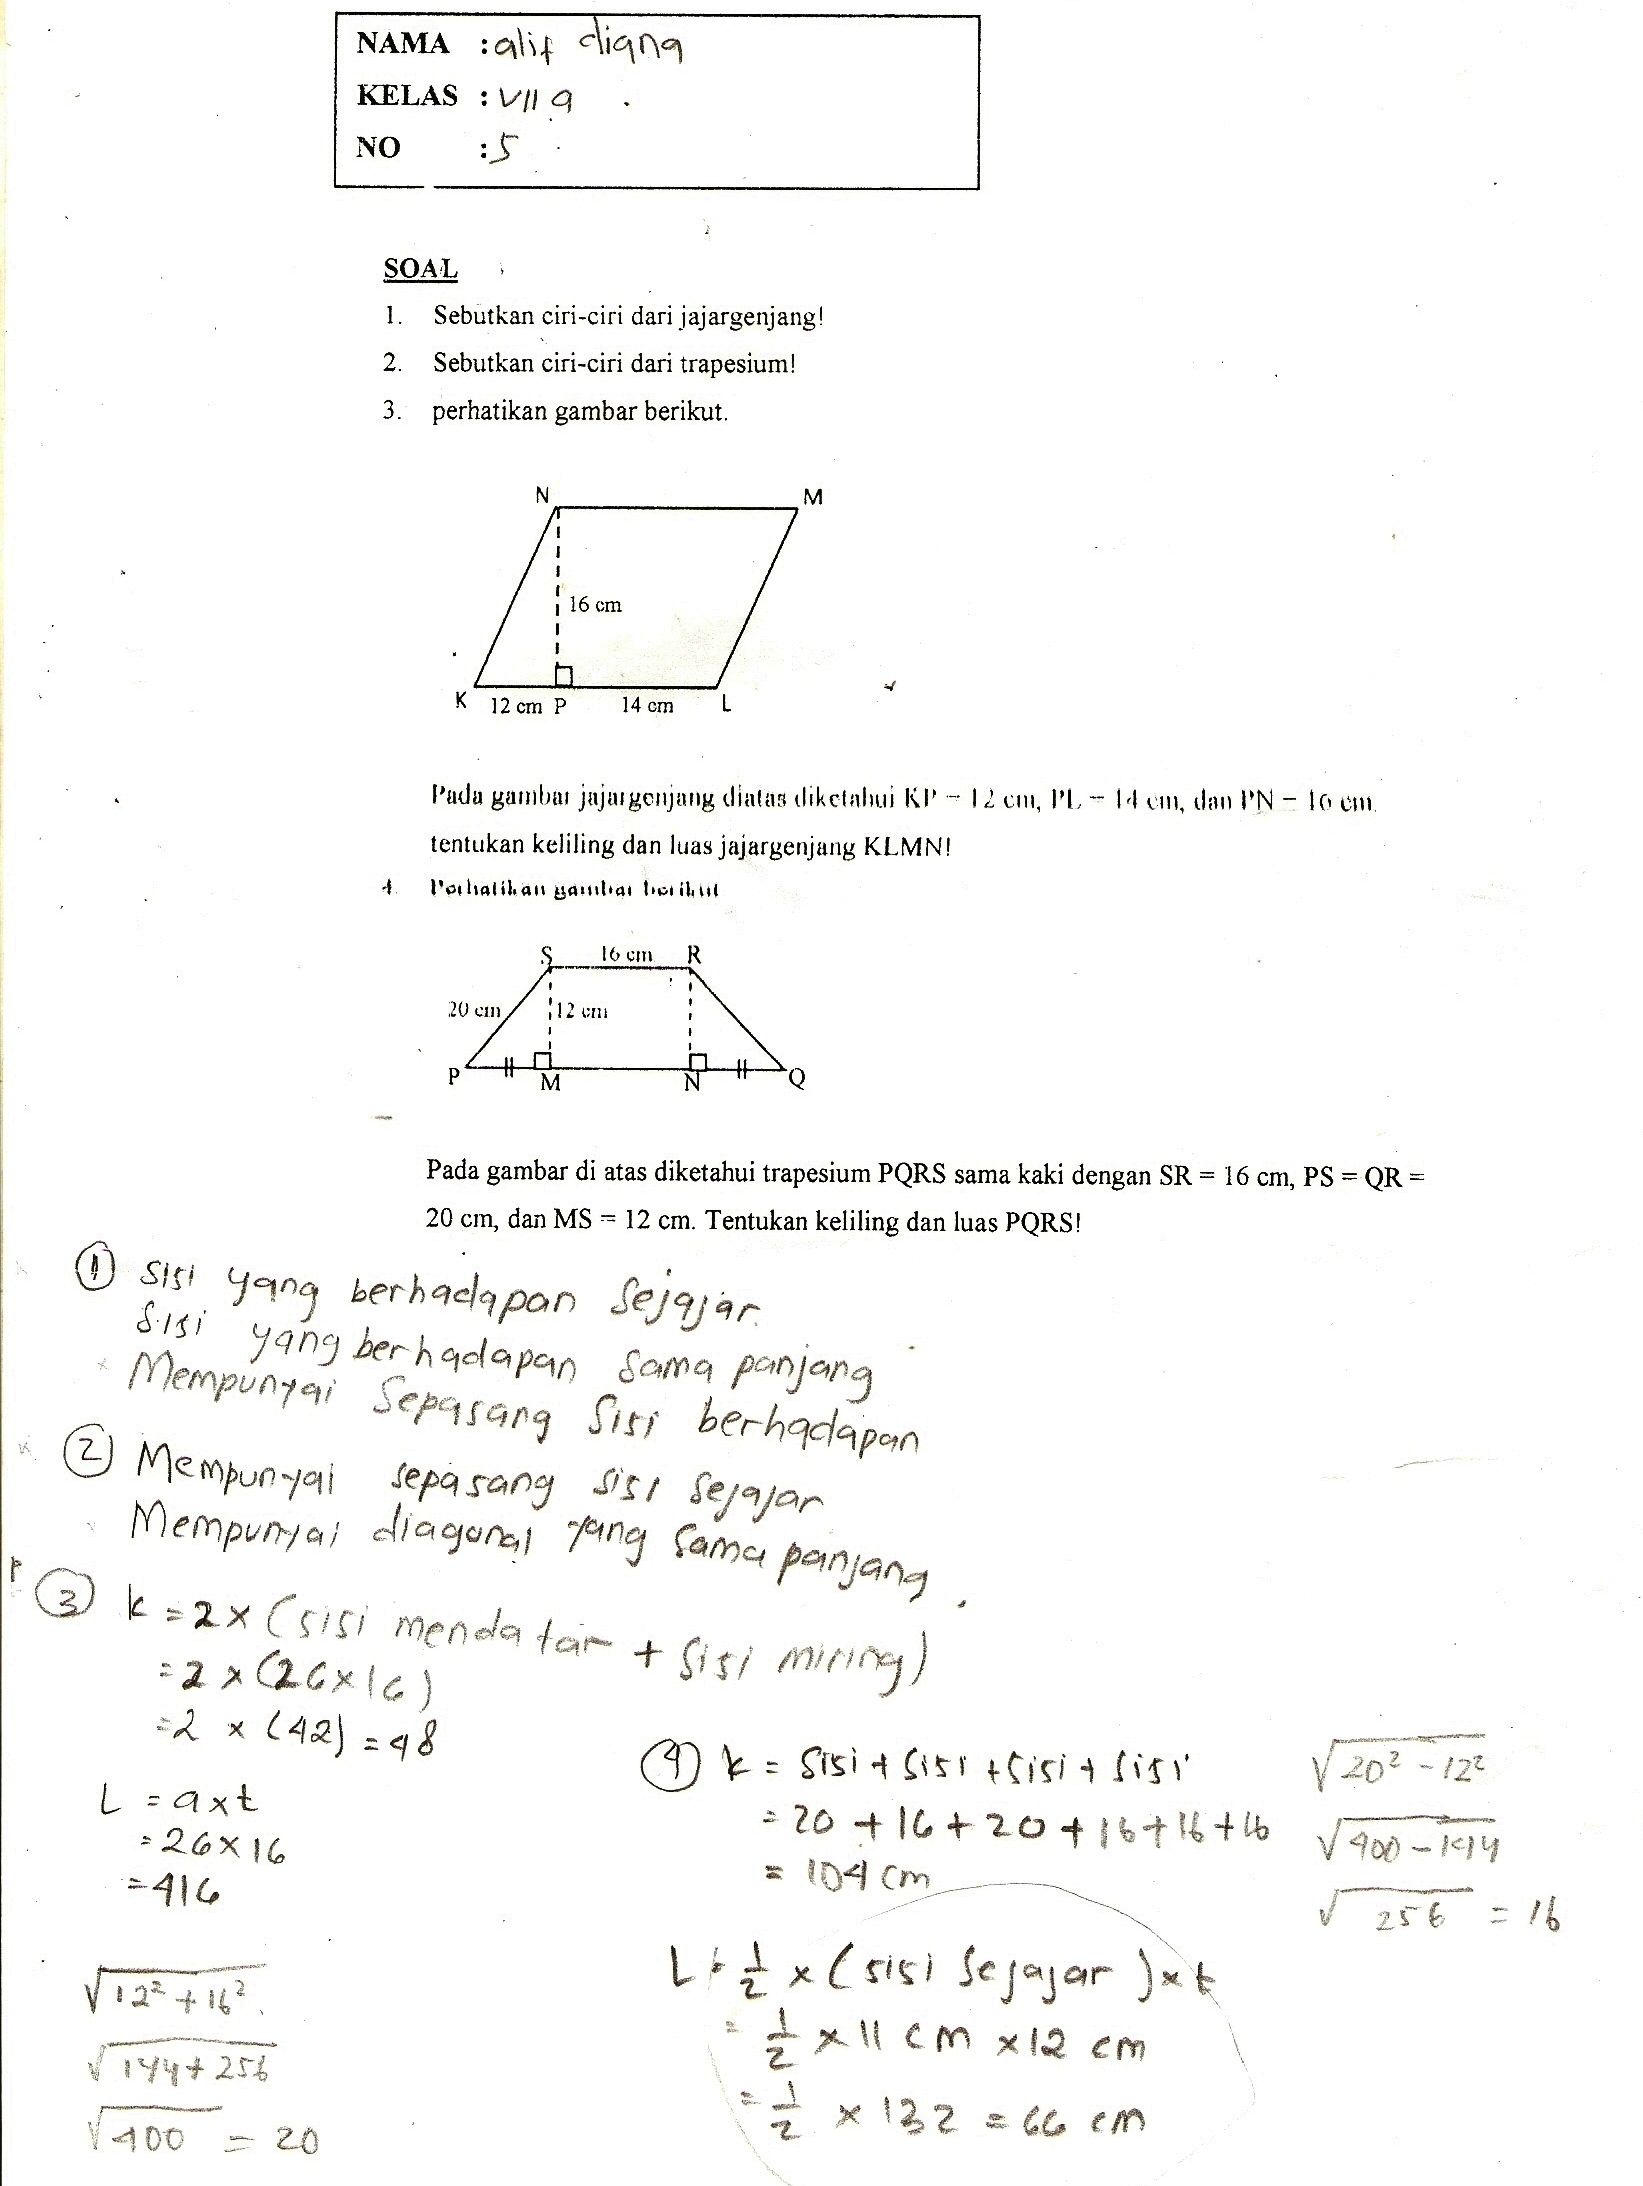 NAMA : alif diana
KELAS : VII a
NO : 5
SOAL
1. Sebutkan ciri-ciri dari jajargenjang!
2. Sebutkan ciri-ciri dari trapesium!
3. perhatikan gambar berikut.
N M
16 cm
K 12 cm P 14 cm L
Pada gambar jajargenjang diatas diketahui KP = 12 cm, PL = 14 cm, dan PN = 16 cm.
tentukan keliling dan luas jajargenjang KLMN!
4. Perhatikan gambar berikut
S 16 cm R
20 cm 12 cm
P M N Q
Pada gambar di atas diketahui trapesium PQRS sama kaki dengan SR = 16 cm, PS = QR =
20 cm, dan MS = 12 cm. Tentukan keliling dan luas PQRS!
① Sisi yang berhadapan sejajar.
Sisi yang berhadapan sama panjang
Mempunyai sepasang sisi berhadapan
② Mempunyai sepasang sisi sejajar
Mempunyai diagonal yang sama panjang.
③ k = 2 x (sisi mendatar + sisi miring)
= 2 x (26 x 16)
= 2 x (42) = 48
L = a x t
= 26 x 16
= 416
√12² + 16²
√144 + 256
√400 = 20
④ k = sisi + sisi + sisi + sisi
= 20 + 16 + 20 + 16 + 16 + 16
= 104 cm
L = ½ x (sisi sejajar) x t
= ½ x 11 cm x 12 cm
= ½ x 132 = 66 cm
√20² - 12²
√400 - 144
√256 = 16